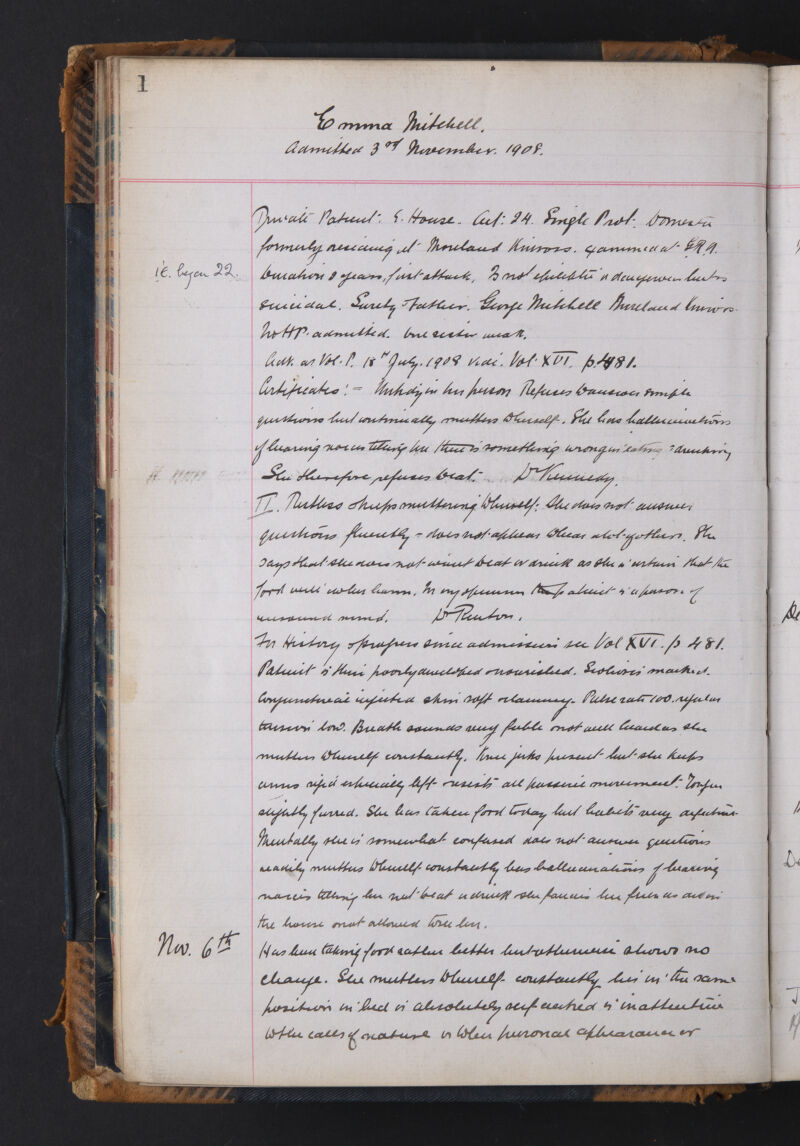 1
Emma Mitchell.
Admitted 3rd November. 1908.
Private Patient. E. House. Aet: 24. Single Prot: Domestic
formerly residing at Moreland Kinross. examined at
i.e. began 22.
Duration 2 years, first attack, Is not epileptic or dangerous but is
suicidal. Surety Father. George Mitchell Moreland Kinross.
No HP. admitted. One sister weak.
Adm. as Vol. P. 18th July. 1908 vide. Vol. XVI. p. 481.
Certificates: - Untidy in her person Refuses to answer simple
questions but continually mutters to herself. She has hallucinations
of hearing voices telling her there is something wrong in eating & drinking
She therefore refuses to eat. Dr Kennedy.
II. Restless & keeps muttering to herself: She does not answer
questions fluently & does not appear to hear a lot of others. She
says that she does not want to eat or drink as she is certain that the
food will do her harm. In my opinion patient is a person of
unsound mind. Dr Renton.
For History & progress since admission see Vol XVI. p. 481.
Patient is thin poorly developed & nourished. Scoliosis marked.
Conjunctivae injected skin soft & clammy. Pulse rate 100. regular
tension low. Breath sounds very feeble & not well heard as she
mutters to herself constantly. Knee jerks present but she keeps
arms rigid especially left & resists all passive movement. Tongue
slightly furred. She has taken food today but habits very defective.
Mentally she is somewhat confused does not answer questions
readily mutters to herself constantly has hallucinations of hearing
voices telling her not to eat or drink she fancies her friends are in
the house & not allowed to see her.
Nov. 6th
Has been taking food rather better but otherwise shows no
change. She mutters to herself constantly lies in the same
position in bed is absolutely self centred is inattentive
to the calls of nature or to her personal appearance or